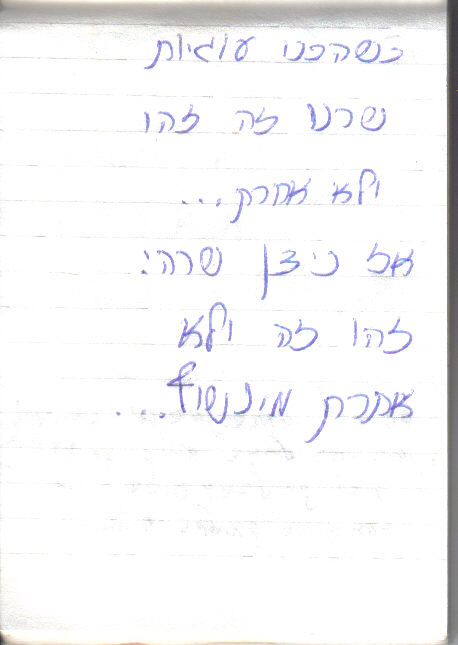 כשהכנו עוגיות
שרנו זה זהו
ולא אחרת...
אז ניצן שרה:
זהו זה ולא
אחרת מינשוף...